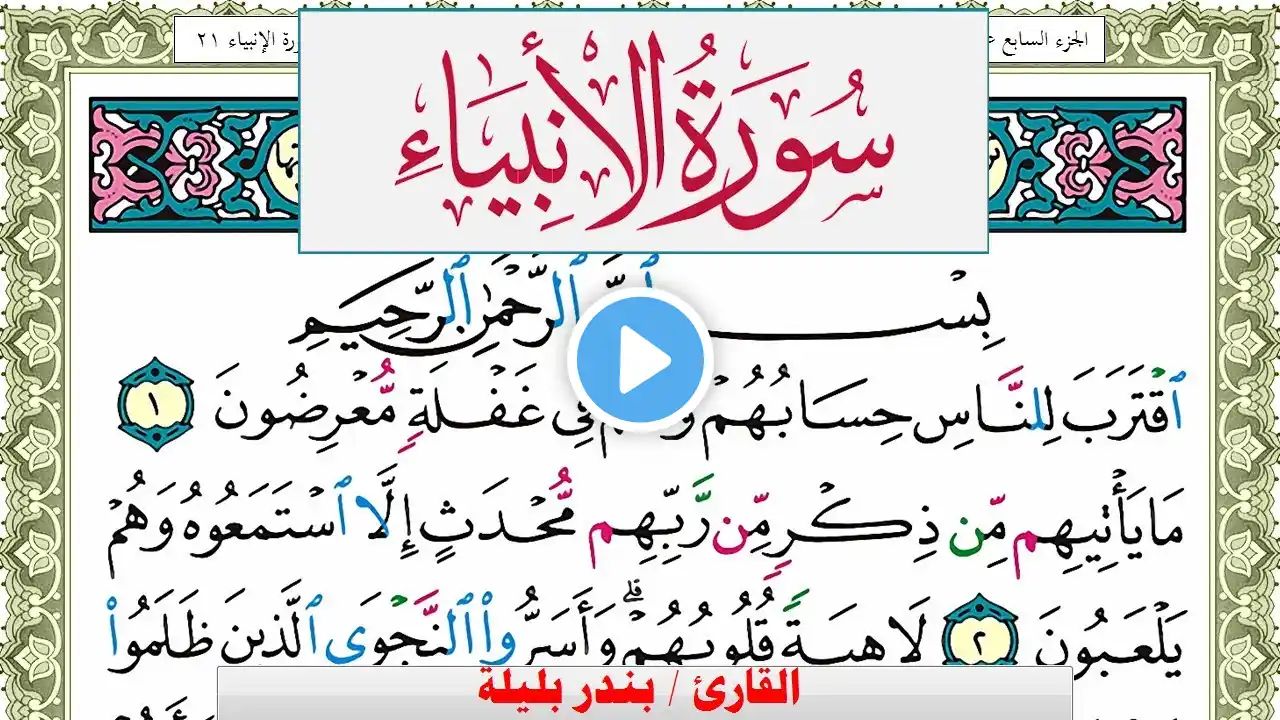 الجزء السابع
الإنبياء ٢١
سُورَةُ الْأَنْبِيَاءِ
بِسْمِ ٱللَّهِ ٱلرَّحْمَٰنِ ٱلرَّحِيمِ
ٱقْتَرَبَ لِلنَّاسِ حِسَابُهُمْ وَهُمْ فِى غَفْلَةٍ مُّعْرِضُونَ ١
مَا يَأْتِيهِم مِّن ذِكْرٍ مِّن رَّبِّهِم مُّحْدَثٍ إِلَّا ٱسْتَمَعُوهُ وَهُمْ
يَلْعَبُونَ ٢ لَاهِيَةً قُلُوبُهُمْ ۗ وَأَسَرُّوا۟ ٱلنَّجْوَى ٱلَّذِينَ ظَلَمُوا۟
القارئ / بندر بليلة